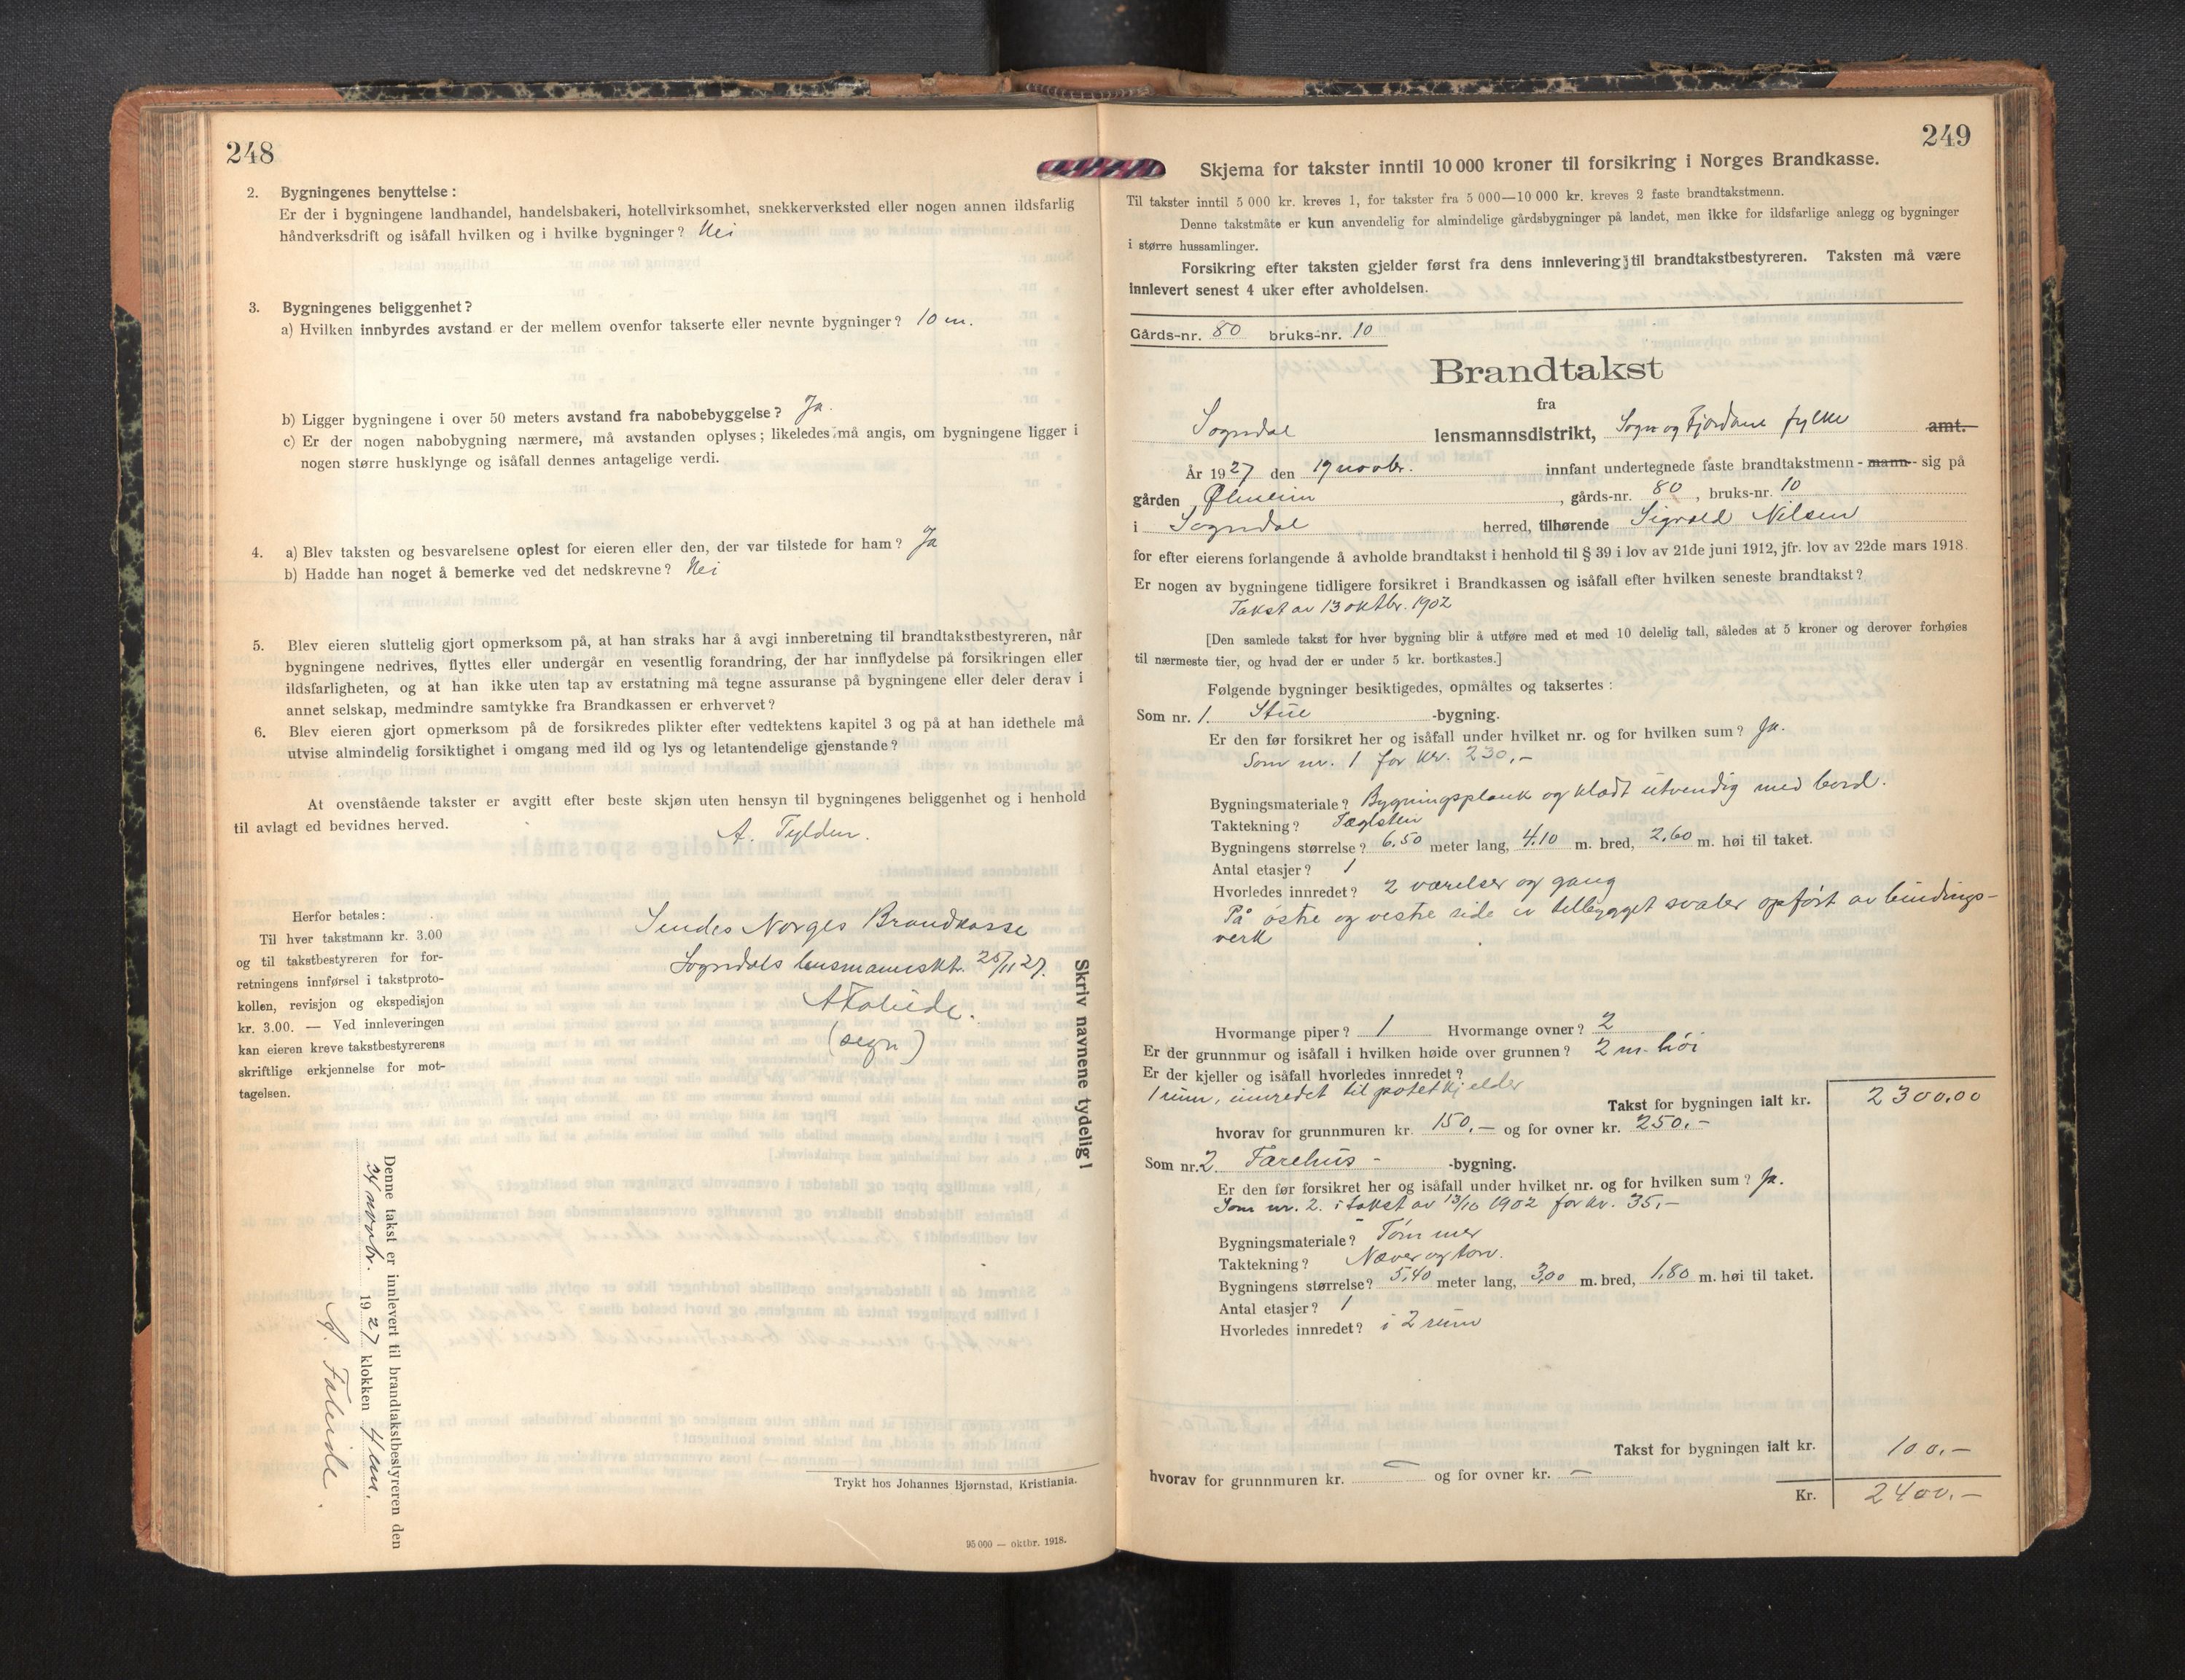 248
2. Bygningenes benyttelse:
Er der i bygningene landhandel, handelsbakeri, hotellvirksomhet, snekkerverksted eller nogen annen ildsfarlig
håndverksdrift og isåfall hvilken og i hvilke bygninger? Nei
3. Bygningenes beliggenhet?
a) Hvilken innbyrdes avstand er der mellem ovenfor takserte eller nevnte bygninger? 10 m.
b) Ligger bygningene i over 50 meters avstand fra nabobebyggelse? Ja.
c) Er der nogen nabobygning nærmere, må avstanden oplyses; likeledes må angis, om bygningene ligger i
nogen større husklynge og isåfall dennes antagelige verdi.
4. a) Blev taksten og besvarelsene oplest for eieren eller den, der var tilstede for ham? Ja
b) Hadde han noget å bemerke ved det nedskrevne? Nei
5. Blev eieren sluttelig gjort opmerksom på, at han straks har å avgi innberetning til brandtakstbestyreren, når
bygningene nedrives, flyttes eller undergår en vesentlig forandring, der har innflydelse på forsikringen eller
ildsfarligheten, og at han ikke uten tap av erstatning må tegne assuranse på bygningene eller deler derav i
annet selskap, medmindre samtykke fra Brandkassen er erhvervet?
6. Blev eieren gjort opmerksom på de forsikredes plikter efter vedtektens kapitel 3 og på at han idethele må
utvise almindelig forsiktighet i omgang med ild og lys og letantendelige gjenstande?
At ovenstående takster er avgitt efter beste skjøn uten hensyn til bygningenes beliggenhet og i henhold
til avlagt ed bevidnes herved.
A. Tylden.
Herfor betales:
Til hver takstmann kr. 3.00
og til takstbestyreren for for-
retningens innførsel i takstproto-
kollen, revisjon og ekspedisjon
kr. 3.00. — Ved innleveringen
kan eieren kreve takstbestyrerens
skriftlige erkjennelse for mot-
tagelsen.
Sendes Norges Brandkasse
Sogndals lensmannskt. 25/11 27.
A Faleide.
(sign)
Skriv navnene tydelig!
Denne takst er innlevert til brandtakstbestyreren den
24 novbr. 1927 klokken 4 em.
A. Faleide.
Trykt hos Johannes Bjørnstad, Kristiania.
95 000 — oktbr. 1918.
249
Skjema for takster inntil 10 000 kroner til forsikring i Norges Brandkasse.
Til takster inntil 5 000 kr. kreves 1, for takster fra 5 000—10 000 kr. kreves 2 faste brandtakstmenn.
Denne takstmåte er kun anvendelig for almindelige gårdsbygninger på landet, men ikke for ildsfarlige anlegg og bygninger
i større hussamlinger.
Forsikring efter taksten gjelder først fra dens innlevering til brandtakstbestyreren. Taksten må være
innlevert senest 4 uker efter avholdelsen.
Gårds-nr. 80 bruks-nr. 10
Brandtakst
fra
Sogndal lensmannsdistrikt, Sogn og Fjordane fylke amt.
År 1927 den 19 novbr. innfant undertegnede faste brandtakstmenn - mann - sig på
gården Ølmeim, gårds-nr. 80, bruks-nr. 10
i Sogndal herred, tilhørende Sigvald Nilsen
for efter eierens forlangende å avholde brandtakst i henhold til § 39 i lov av 21de juni 1912, jfr. lov av 22de mars 1918.
Er nogen av bygningene tidligere forsikret i Brandkassen og isåfall efter hvilken seneste brandtakst?
Takst av 13 oktbr. 1902
[Den samlede takst for hver bygning blir å utføre med et med 10 delelig tall, således at 5 kroner og derover forhøies
til nærmeste tier, og hvad der er under 5 kr. bortkastes.]
Følgende bygninger besiktigedes, opmåltes og taksertes:
Som nr. 1. Stue -bygning.
Er den før forsikret her og isåfall under hvilket nr. og for hvilken sum? Ja.
Som nr. 1 for kr. 230,-
Bygningsmateriale? Bygningsplank og klædt utvendig med bord.
Taktekning? Tæglsten
Bygningens størrelse? 6.50 meter lang, 4.10 m. bred, 2,60 m. høi til taket.
Antal etasjer? 1
Hvorledes innredet? 2 værelser og gang
På østre og vestre side er tilbygget svaler opført av bindings-
verk
Hvormange piper? 1 Hvormange ovner? 2
Er der grunnmur og isåfall i hvilken høide over grunnen? 2 m. høi
Er der kjeller og isåfall hvorledes innredet?
1 rum, innredet til potetkjelder
Takst for bygningen ialt kr. 2300,00
hvorav for grunnmuren kr. 150,- og for ovner kr. 250,-
Som nr. 2. Færehus - -bygning.
Er den før forsikret her og isåfall under hvilket nr. og for hvilken sum? Ja.
Som nr. 2. i takst av 13/10 1902 for kr. 35,-
Bygningsmateriale? Tømmer
Taktekning? Næver og torv.
Bygningens størrelse? 5,40 meter lang, 3,00 m. bred, 1,80 m. høi til taket.
Antal etasjer? 1
Hvorledes innredet? i 2 rum
Takst for bygningen ialt kr. 100,-
hvorav for grunnmuren kr. — og for ovner kr. —
Kr. 2400,-